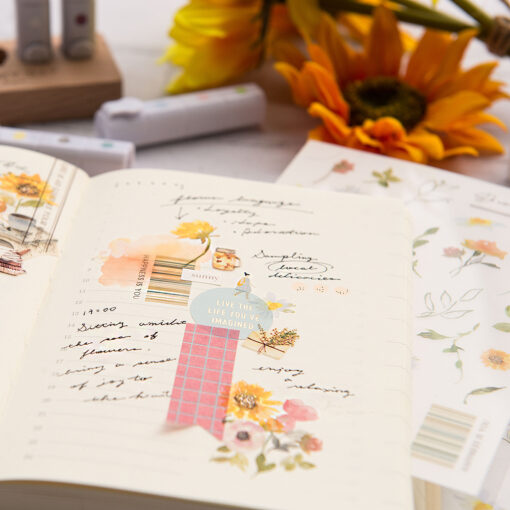 flower language
• Loyalty
• Hope
• Adoration
Sampling
sweet
delicacies
HAPPINESS IS YOU
LIVE THE
LIFE YOU'VE
IMAGINED
19:00
Sitting amidst
the sea of
flowers.
bring a sense
of joy to
the heart
enjoy
a relaxing